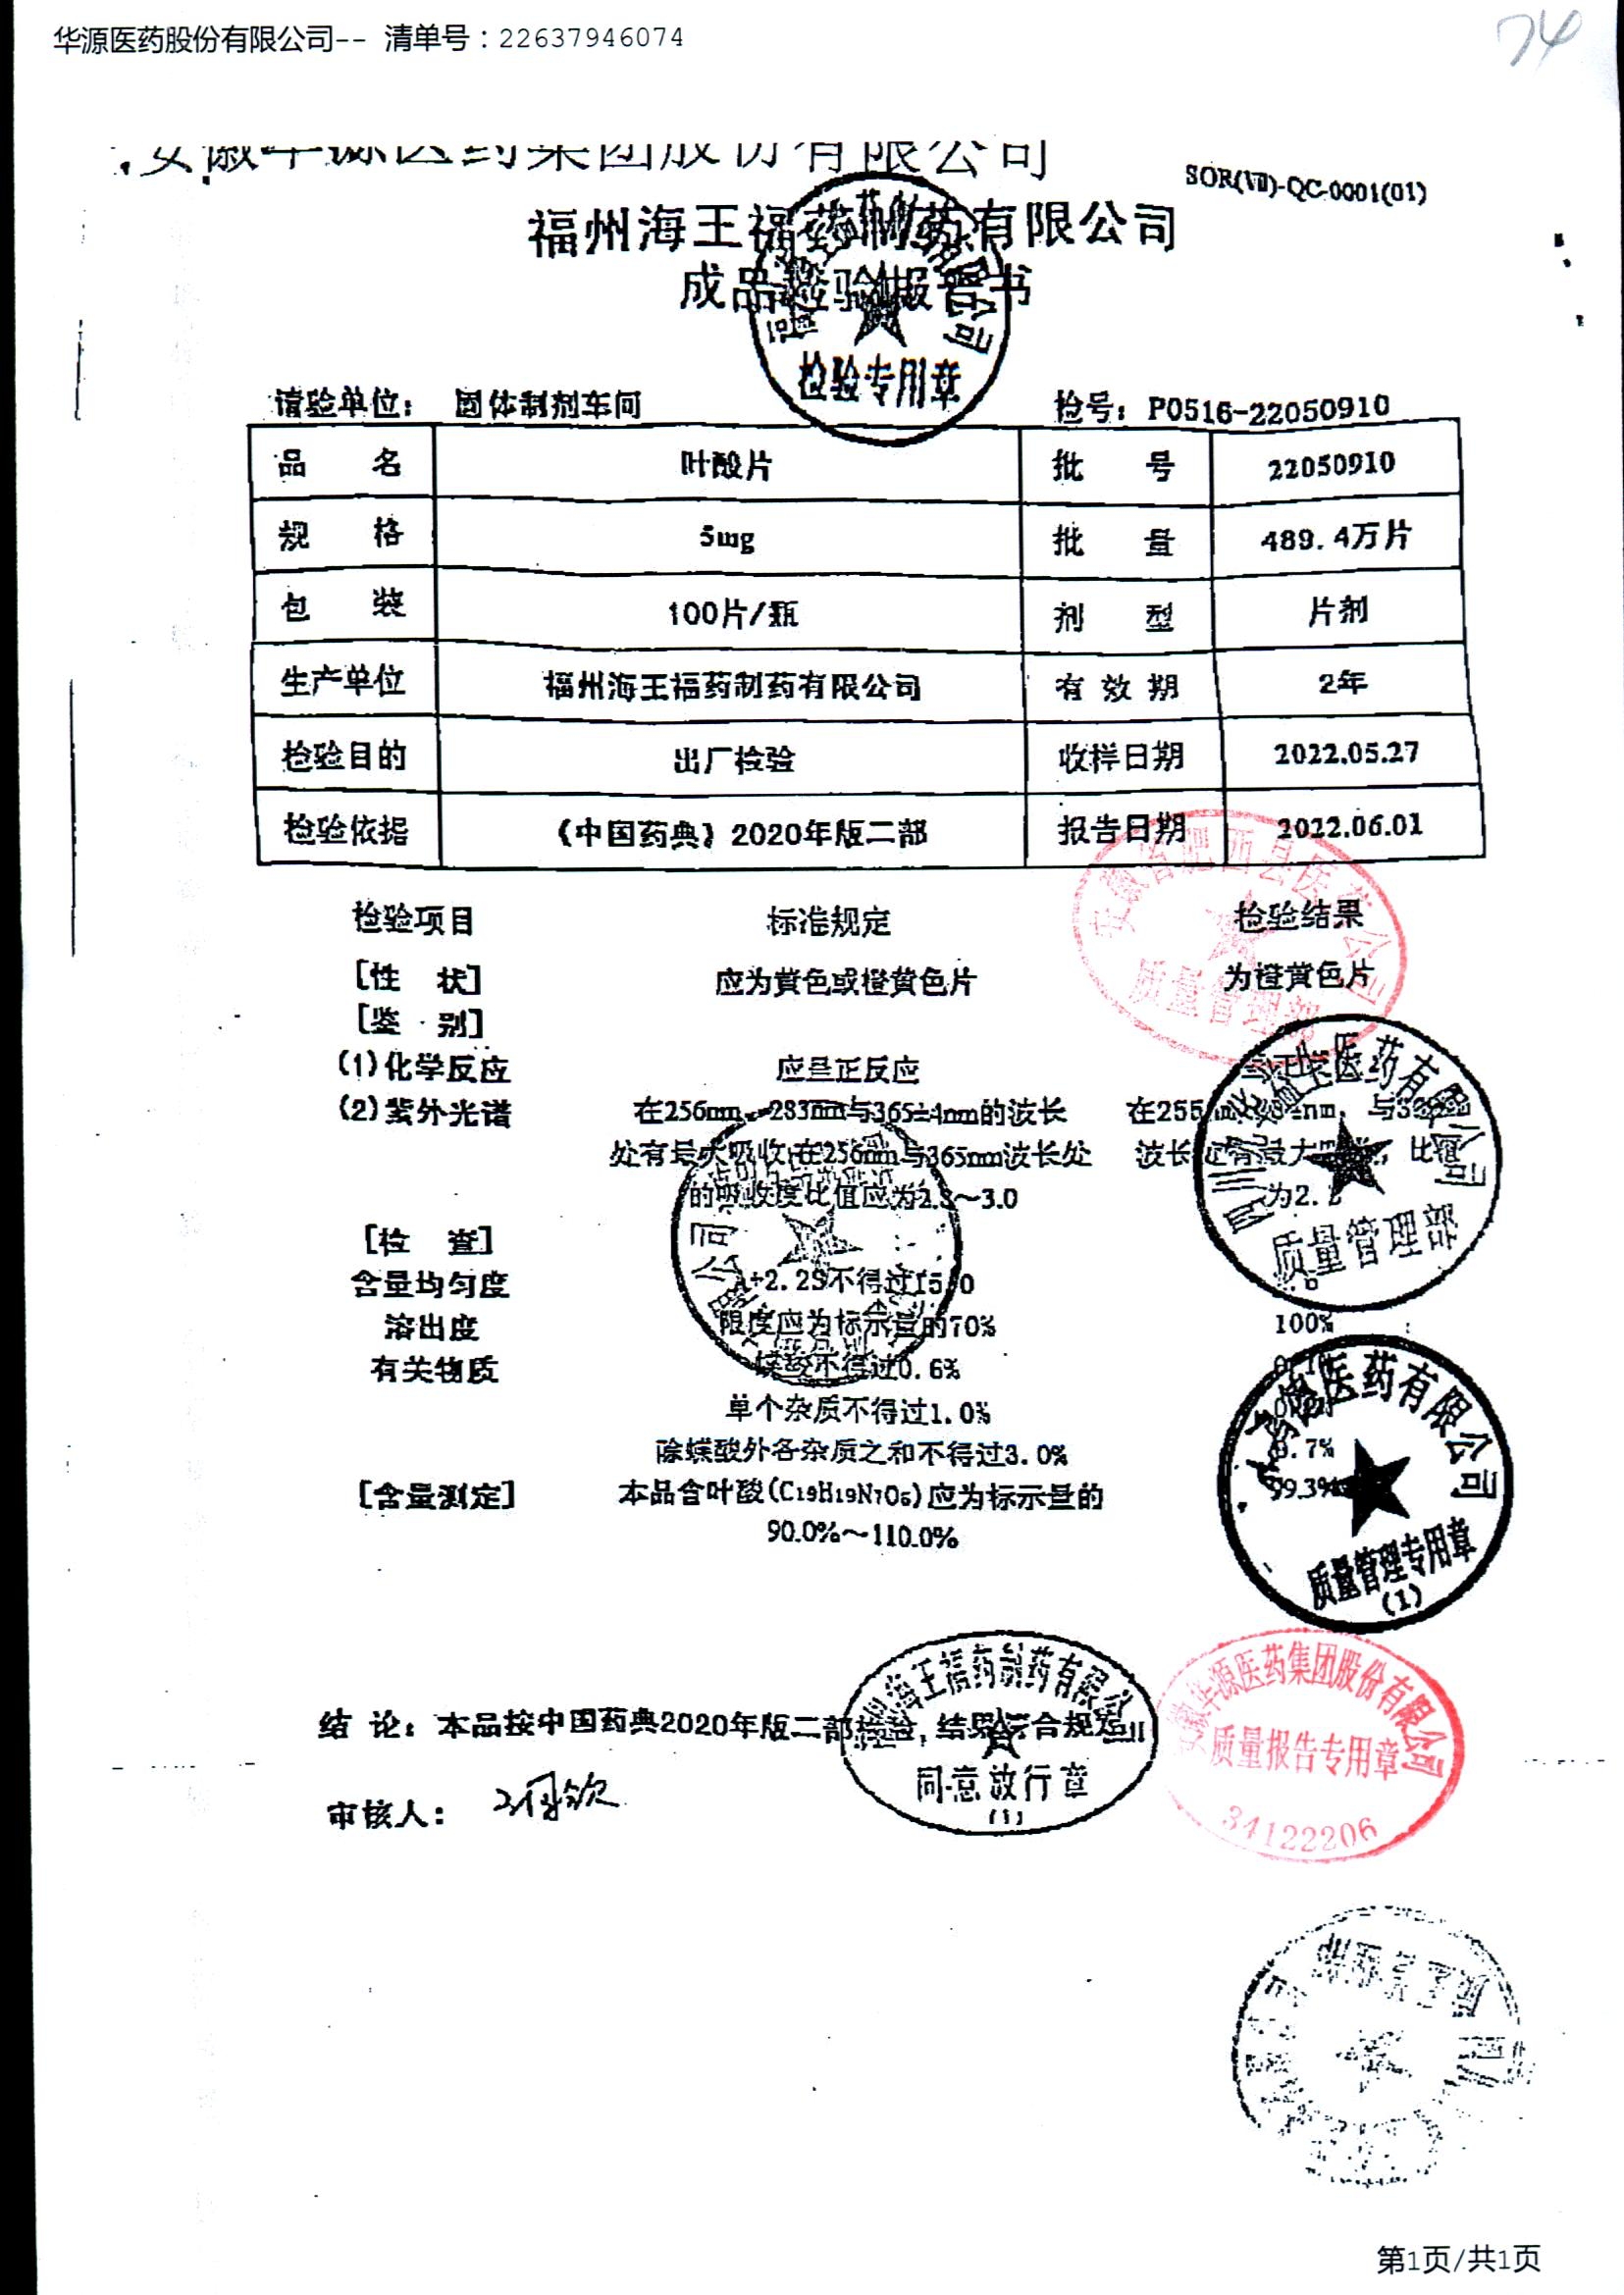 华源医药股份有限公司-- 清单号：22637946074
74
安徽华源医药集团股份有限公司
SOR(Ⅶ)-QC-0001(01)
福州海王福药制药有限公司
成品检验报告书
检验专用章
请验单位： 固体制剂车间 检号：P0516-22050910
品 名 叶酸片 批 号 22050910
规 格 5mg 批 量 489.4万片
包 装 100片/瓶 剂 型 片剂
生产单位 福州海王福药制药有限公司 有效期 2年
检验目的 出厂检验 收样日期 2022.05.27
检验依据 《中国药典》2020年版二部 报告日期 2022.06.01
检验项目 标准规定 检验结果
[性 状] 应为黄色或橙黄色片 为橙黄色片
[鉴 别]
(1)化学反应 应呈正反应
(2)紫外光谱 在256nm、283nm与365±4nm的波长 在255
处有最大吸收，在256nm与365nm波长处 波长处有最大 比值
的吸收度比值应为2.8～3.0 为2.
[检 查]
含量均匀度 A+2.2S不得过15.0
溶出度 限度应为标示量的70% 100%
有关物质 蝶酸不得过0.6%
单个杂质不得过1.0%
除蝶酸外各杂质之和不得过3.0% 0.7%
[含量测定] 本品含叶酸(C19H19N7O6)应为标示量的 99.3%
90.0%～110.0%
安徽省肥西县医药公司
质量管理部
医药有限公司
质量管理部
医药有限公司
质量管理专用章
(1)
结 论：本品按中国药典2020年版二部检验，结果符合规定
福州海王福药制药有限公司
同意放行章
(1)
安徽华源医药集团股份有限公司
质量报告专用章
34122206
审核人：
第1页/共1页